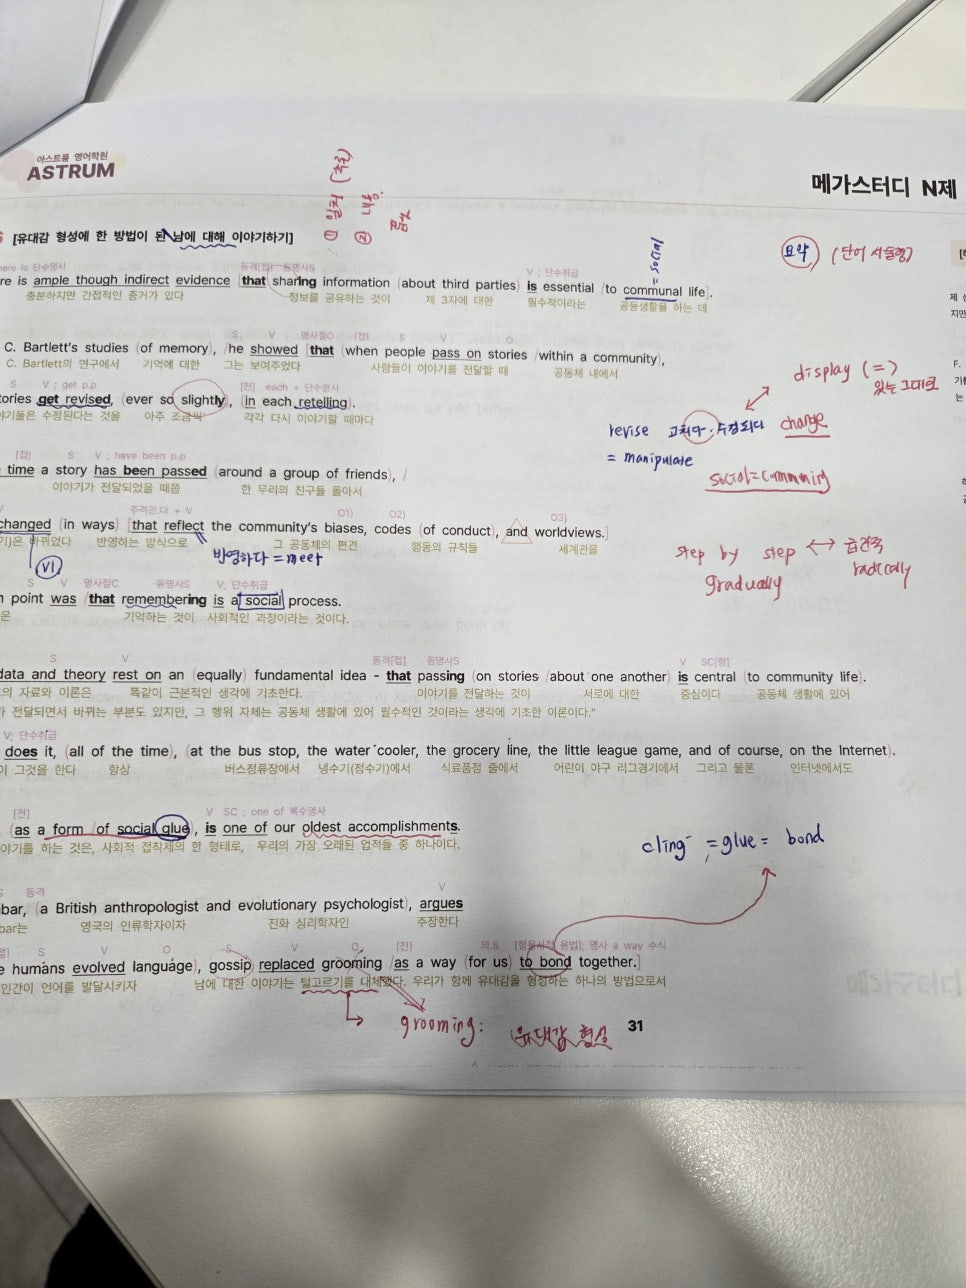 아스트룸 영어학원
ASTRUM
메가스터디 N제
① 일치 (주로)
② 내용
[유대감 형성에 한 방법이 된 남에 대해 이야기하기]
요약 (단어 서술형)
social
is 단수명사 동격[접] 동명사S V ; 단수취급
re is ample though indirect evidence [that sharing information (about third parties) is essential /to communal life].
충분하지만 간접적인 증거가 있다 정보를 공유하는 것이 제 3자에 대한 필수적이라는 공동생활을 하는 데
S V 명사절O [접] S V O
C. Bartlett's studies (of memory), /he showed [that (when people pass on stories /within a community),
C. Bartlett의 연구에서 기억에 대한 그는 보여주었다 사람들이 이야기를 전달할 때 공동체 내에서
display (=)
있는 그대로
S V ; get p.p [전] each + 단수명사
tories get revised, (ever so slightly), (in each retelling).
기들은 수정된다는 것을 아주 조금씩 각각 다시 이야기할 때마다
revise 고치다·수정되다 change
= manipulate
social=community
[접] S V ; have been p.p
time a story has been passed (around a group of friends), /
이야기가 전달되었을 때쯤 한 무리의 친구들 돌아서
V 주격관.대 + V O1) O2) O3)
changed (in ways) [that reflect the community's biases, codes (of conduct), and worldviews.]
바뀌었다 반영하는 방식으로 그 공동체의 편견 행동의 규칙들 세계관을
반영하다 = meet
step by step ↔ 급진적
gradually radically
S V 명사절C 동명사S V; 단수취급
n point was /that remembering is a social process.
은 기억하는 것이 사회적인 과정이라는 것이다.
S V 동격[접] 동명사S V SC[형]
data and theory rest on an (equally) fundamental idea - that passing (on stories /about one another) is central (to community life).
의 자료와 이론은 똑같이 근본적인 생각에 기초한다. 이야기를 전달하는 것이 서로에 대한 중심이다 공동체 생활에 있어
가 전달되면서 바뀌는 부분도 있지만, 그 행위 자체는 공동체 생활에 있어 필수적인 것이라는 생각에 기초한 이론이다."
V; 단수취급
does it, (all of the time), (at the bus stop, the water cooler, the grocery line, the little league game, and of course, on the Internet).
이 그것을 한다 항상 버스정류장에서 냉수기(정수기)에서 식료품점 줄에서 어린이 야구 리그경기에서 그리고 물론 인터넷에서도
[전] V SC ; one of 복수명사
(as a form /of social glue), is one of our oldest accomplishments.
야기를 하는 것은, 사회적 접착제의 한 형태로, 우리의 가장 오래된 업적들 중 하나이다.
cling = glue = bond
S 동격 V
bar, (a British anthropologist and evolutionary psychologist), argues
bar는 영국의 인류학자이자 진화 심리학자인 주장한다
S V O S V O [전] 의.S [형용사적 용법]; 명사 a way 수식
e humans evolved language), gossip replaced grooming (as a way (for us) to bond together.]
인간이 언어를 발달시키자 남에 대한 이야기는 털고르기를 대체했다. 우리가 함께 유대감을 형성하는 하나의 방법으로서
grooming: 유대감 형성
31